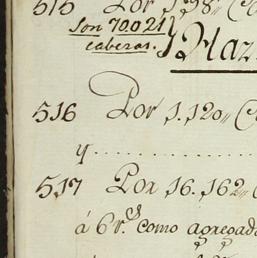 515 Por 1.98,, C
Son 70021
caberas.
Haz
516 Por 1.120,, C
y
517 Por 16.162,, C
á 6 r.s como agregad